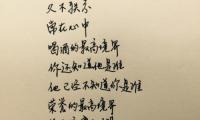 又不缺乏
常在心中
喝酒的最高境界
你还知道他是谁
他已经不知道你是谁
荣誉的最高境界